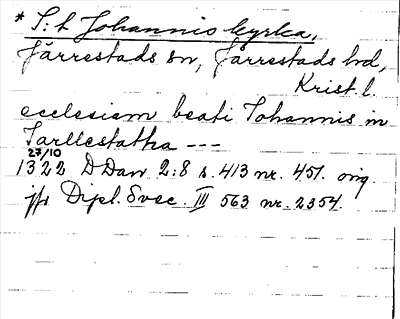 * S:t Johannis kyrka,
Järrestads sn, Järrestads hd,
Krist. l.
ecclesiam beati Johannis in
Jarllestatha ---
27/10
1322 DDan 2:8 s. 413 nr. 451. orig.
jfr Dipl. Svec. III 563 nr. 2354.